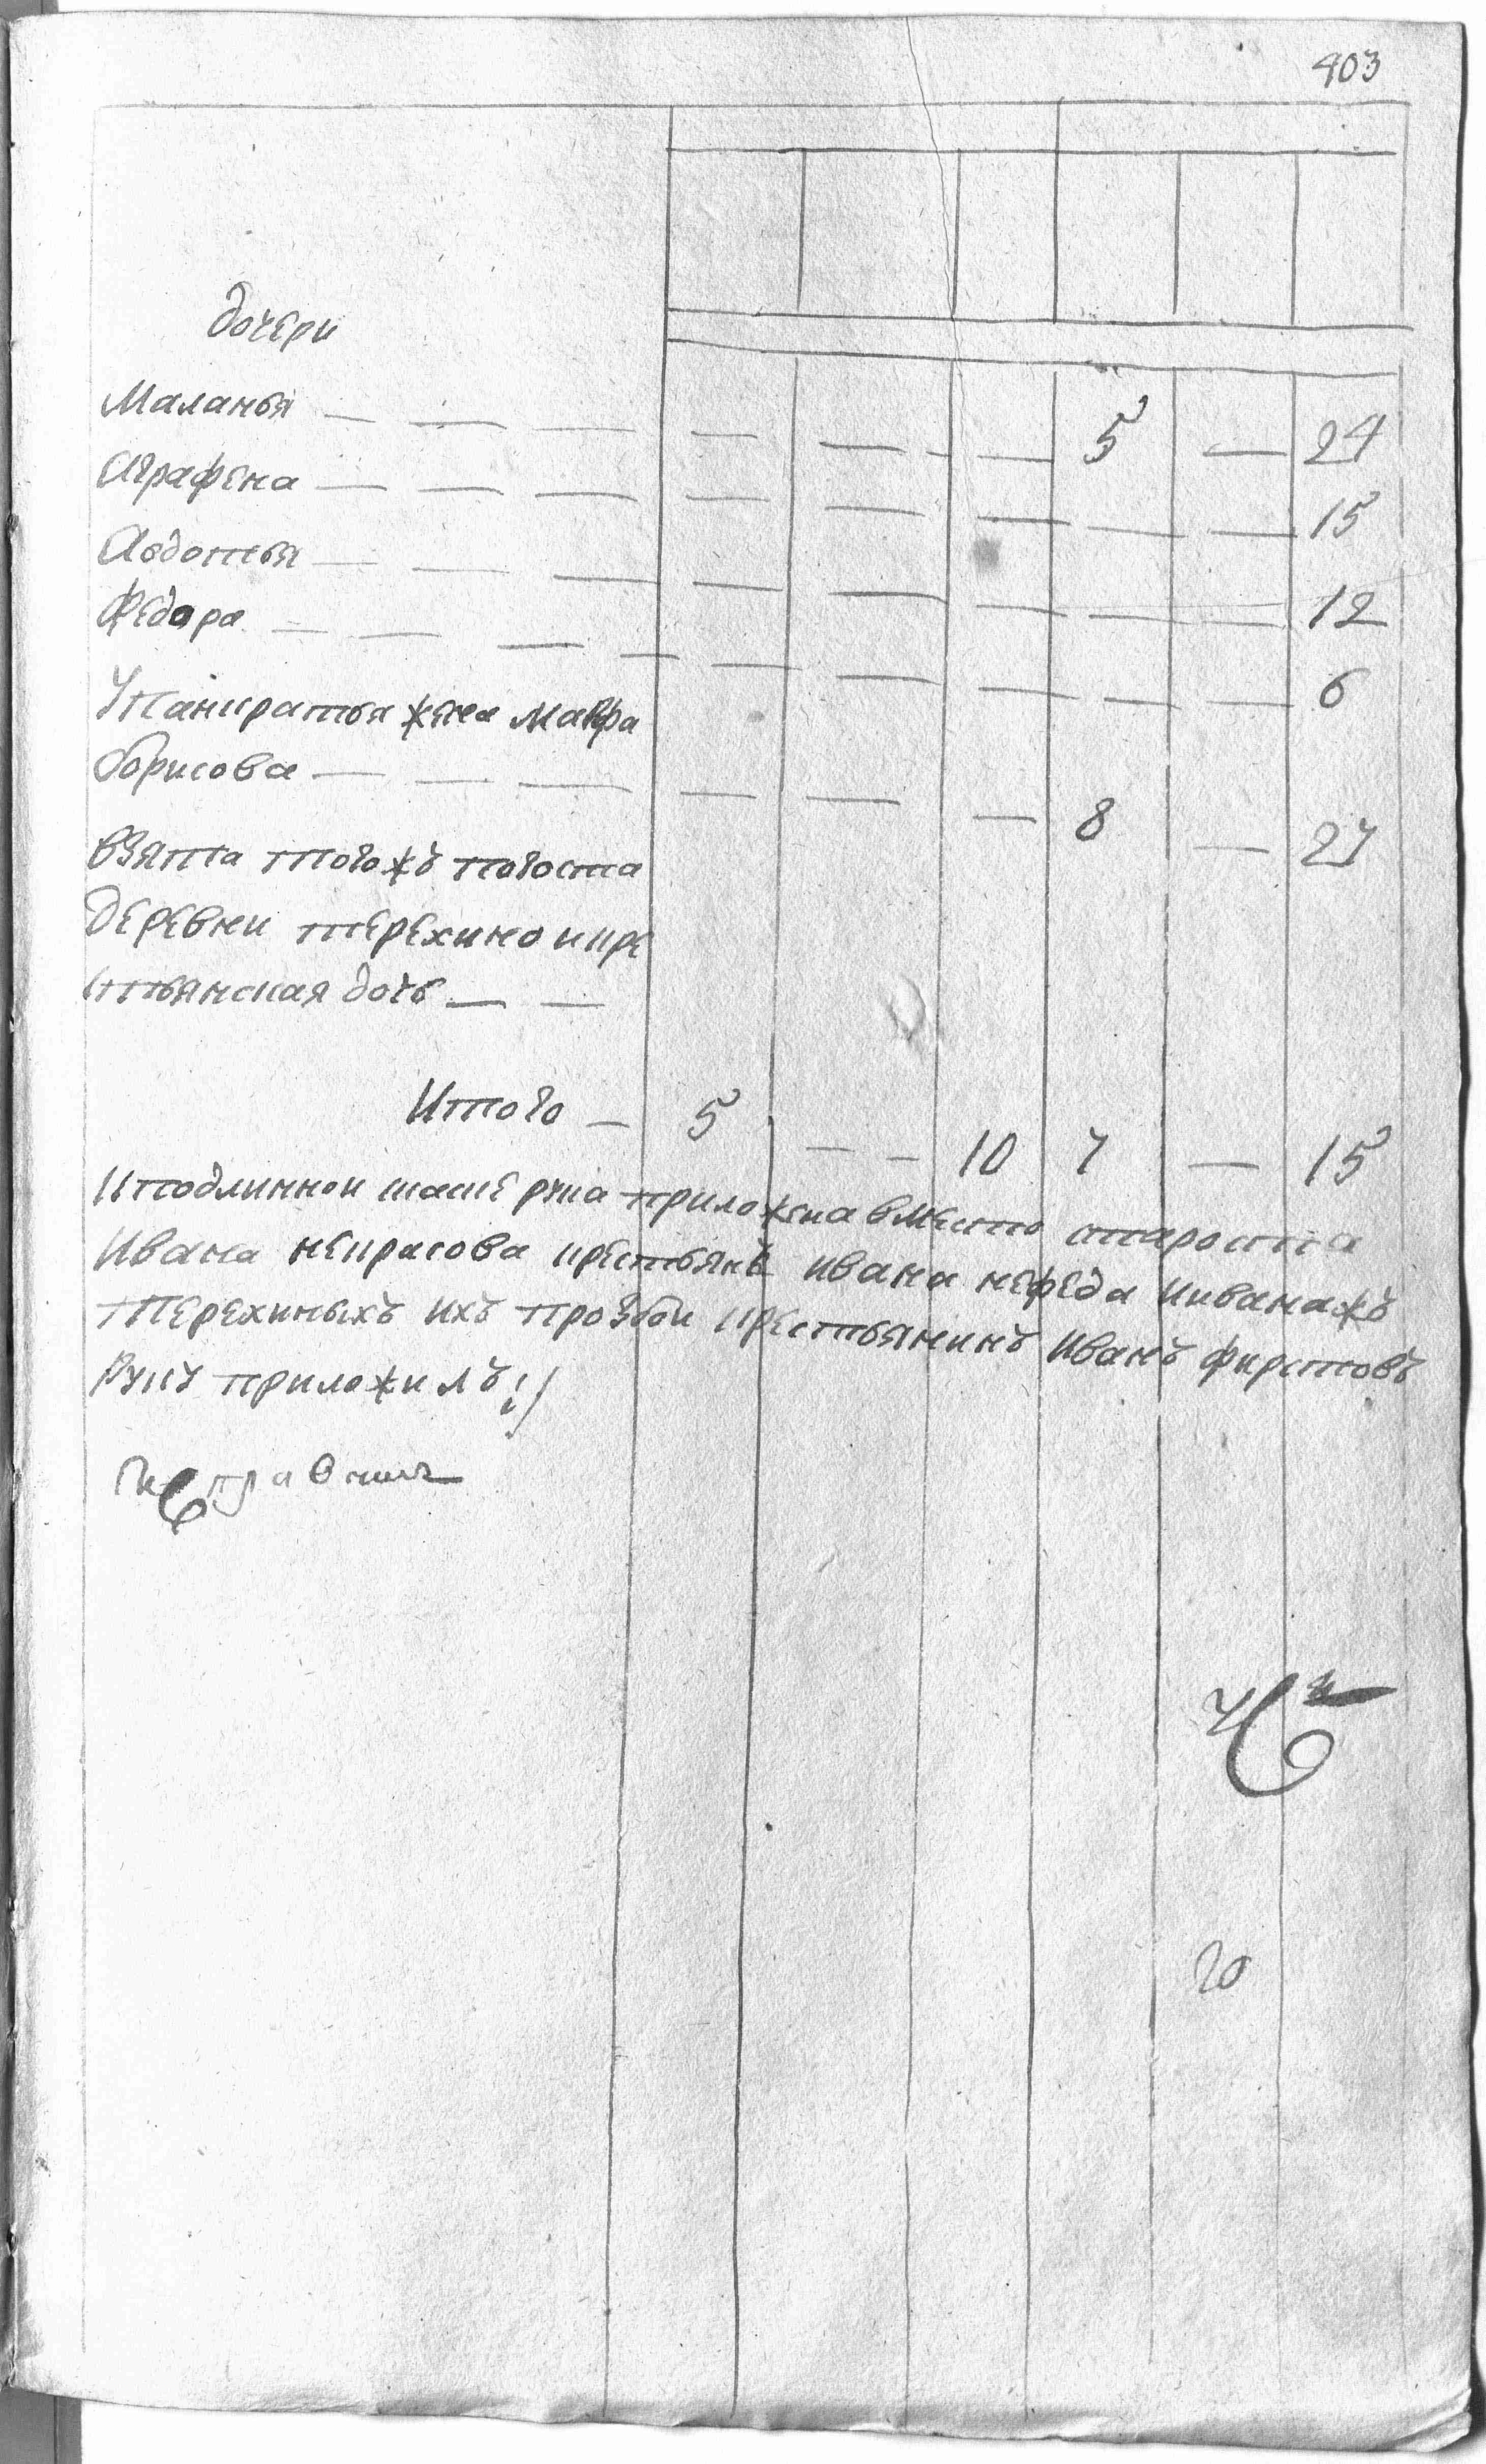 403
дочери
Маланья — — — — — — 5 — 24
Аграфена — — — — — — — — 15
Авдотья — — — — — — — — 12
Федора — — — — — — — — — 6
У Панкратья жена Мавра
борисова — — — — — — 8 — 27
взята тогожъ погоста
деревни терехино кре
стьянская дочь — —
Итого — 5 — — 10 7 — 15
Кподлинной таше рука приложена вместо старосты
Ивана некрасова крестьянъ ивана нефеда иивана жъ
Терехиныхъ ихъ прозбой крестьянинъ Иванъ фирстовъ
руку приложилъ :/
20